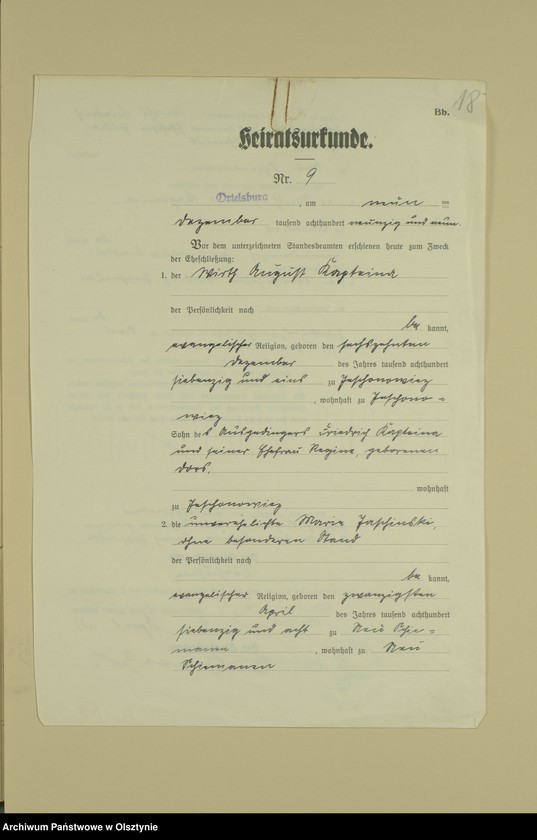 Bb.
18
Heiratsurkunde.
Nr. 9
Ortelsburg, am neun ten
Dezember tausend achthundert neunzig und neun.
Vor dem unterzeichneten Standesbeamten erschienen heute zum Zweck
der Eheschließung:
1. der Wirth August Kapteina
der Persönlichkeit nach
be kannt,
evangelischer Religion, geboren den sechszehnten
Dezember des Jahres tausend achthundert
siebenzig und eins zu Jeschonowitz
, wohnhaft zu Jeschono-
witz
Sohn des Ausgedingers Friedrich Kapteina
und seiner Ehefrau Regine, geborenen
wohnhaft
zu Jeschonowitz
2. die unverehelichte Marie Jaschinski,
ohne besonderen Stand
der Persönlichkeit nach
be kannt,
evangelischer Religion, geboren den zwanzigsten
April des Jahres tausend achthundert
siebenzig und acht zu Neu Schie-
manen, wohnhaft zu Neu
Schiemanen
Archiwum Państwowe w Olsztynie